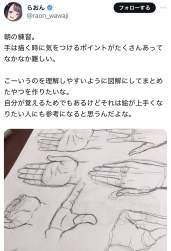 らおん
@raon_wawaji
朝の練習。
手は描く時に気をつけるポイントがたくさんあって
なかなか難しい。
こーいうのを理解しやすいように図解にしてまとめ
たやつを作りたいな。
自分が覚えるためでもあるけどそれは絵が上手くな
りたい人にも参考になると思うんだよな。